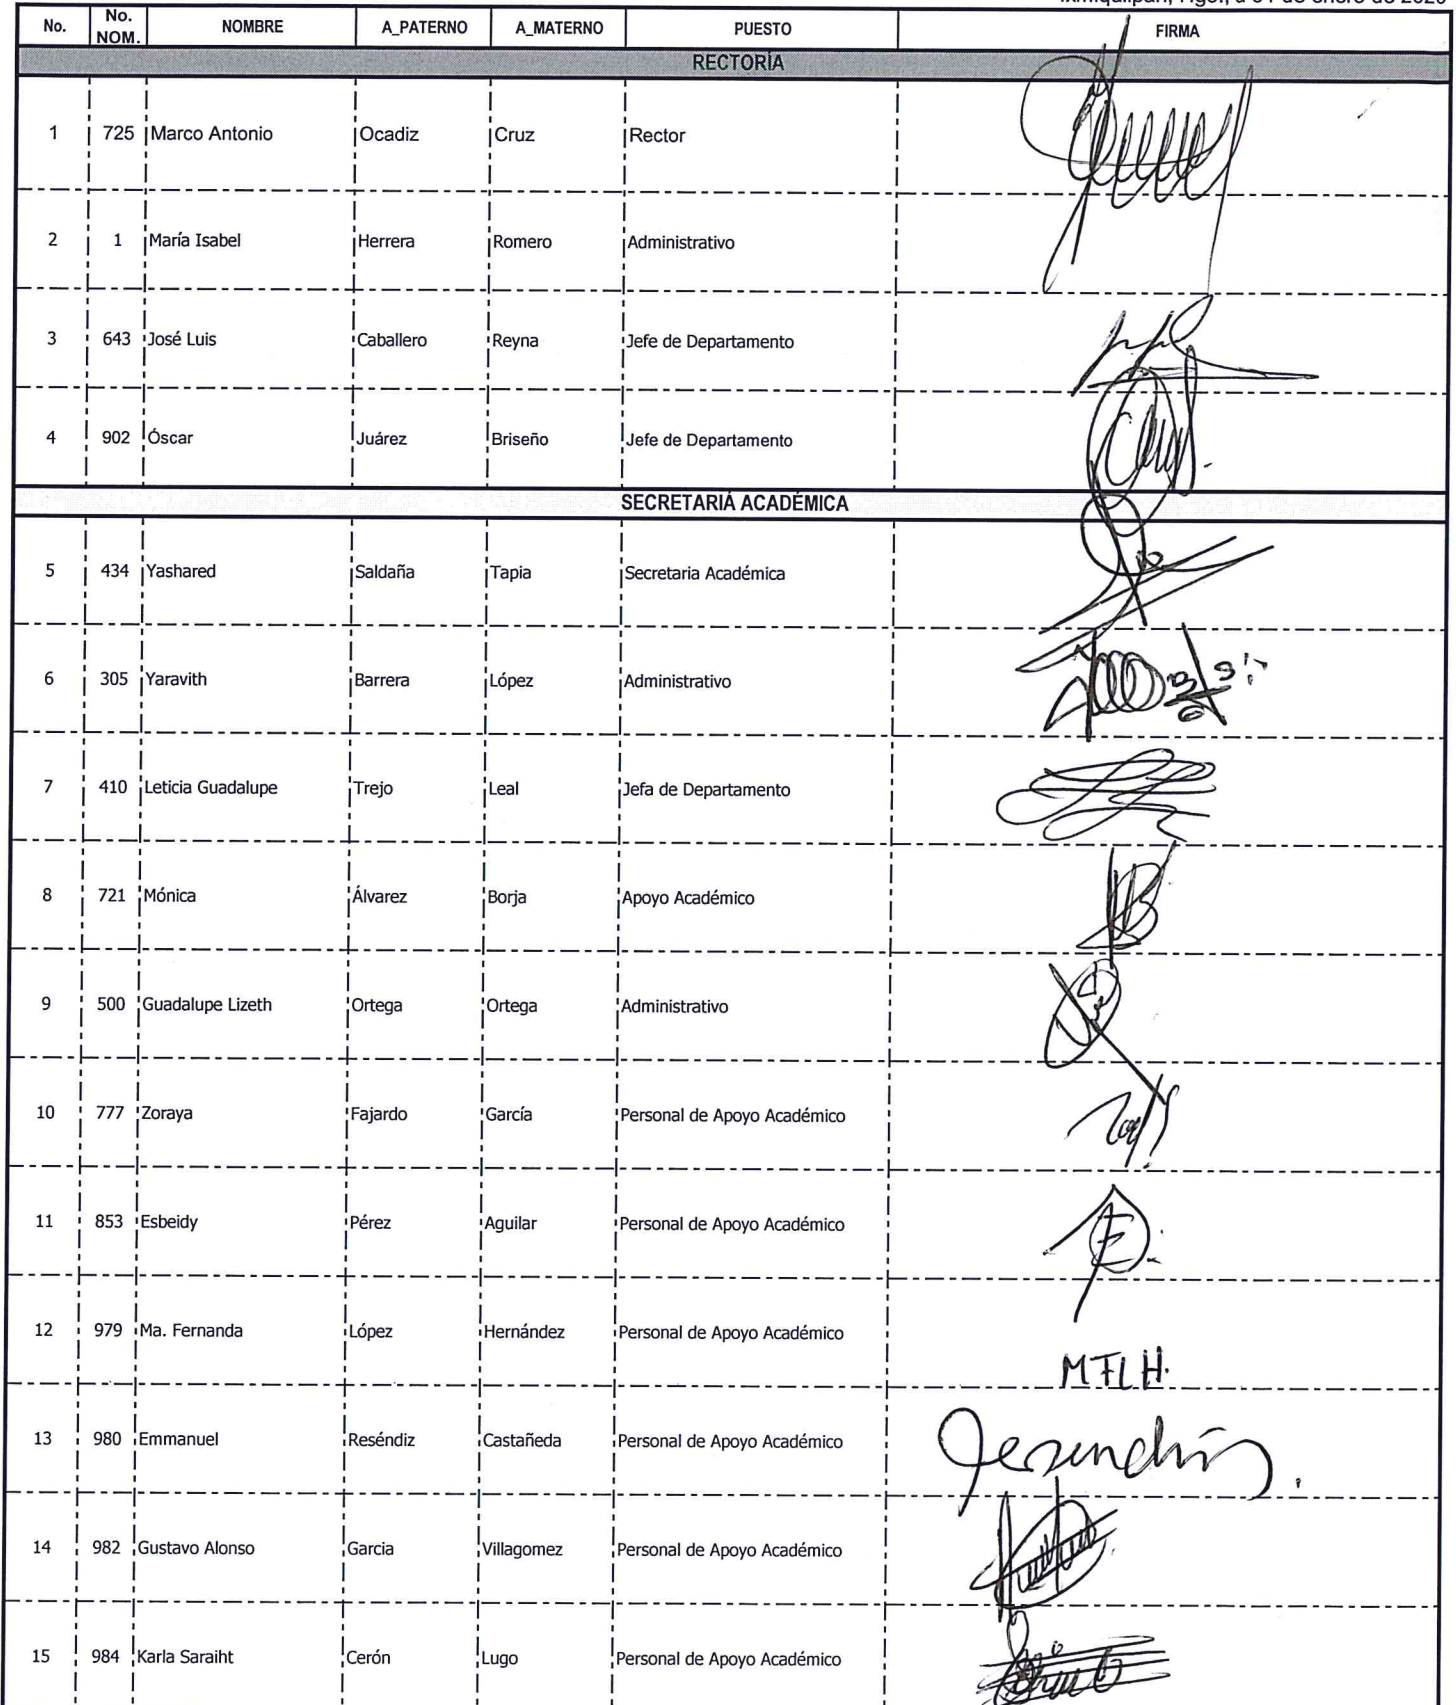 No. No. NOM. NOMBRE A_PATERNO A_MATERNO PUESTO FIRMA
RECTORÍA
1 725 Marco Antonio Ocadiz Cruz Rector
2 1 María Isabel Herrera Romero Administrativo
3 643 José Luis Caballero Reyna Jefe de Departamento
4 902 Óscar Juárez Briseño Jefe de Departamento
SECRETARIA ACADÉMICA
5 434 Yashared Saldaña Tapia Secretaria Académica
6 305 Yaravith Barrera López Administrativo
7 410 Leticia Guadalupe Trejo Leal Jefa de Departamento
8 721 Mónica Álvarez Borja Apoyo Académico
9 500 Guadalupe Lizeth Ortega Ortega Administrativo
10 777 Zoraya Fajardo García Personal de Apoyo Académico
11 853 Esbeidy Pérez Aguilar Personal de Apoyo Académico
12 979 Ma. Fernanda López Hernández Personal de Apoyo Académico MFLH.
13 980 Emmanuel Reséndiz Castañeda Personal de Apoyo Académico
14 982 Gustavo Alonso Garcia Villagomez Personal de Apoyo Académico
15 984 Karla Saraiht Cerón Lugo Personal de Apoyo Académico